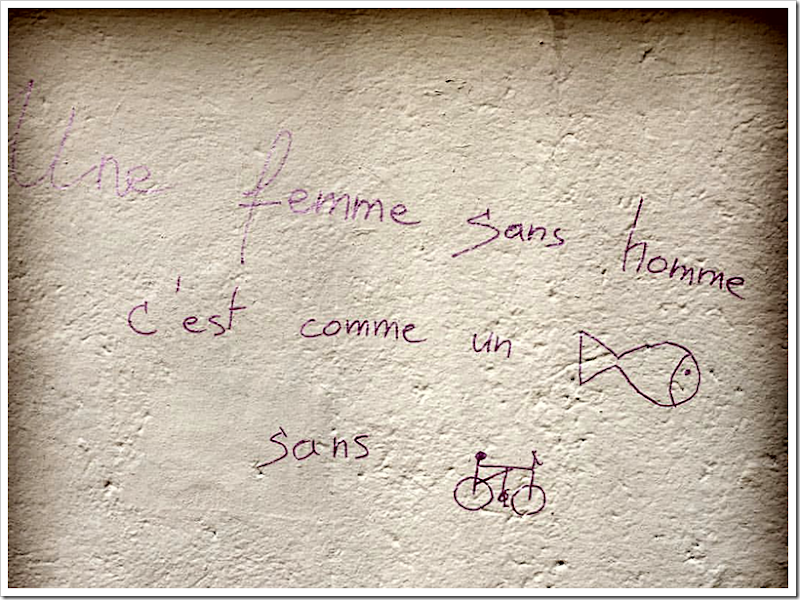 Une femme sans homme
c'est comme un
sans